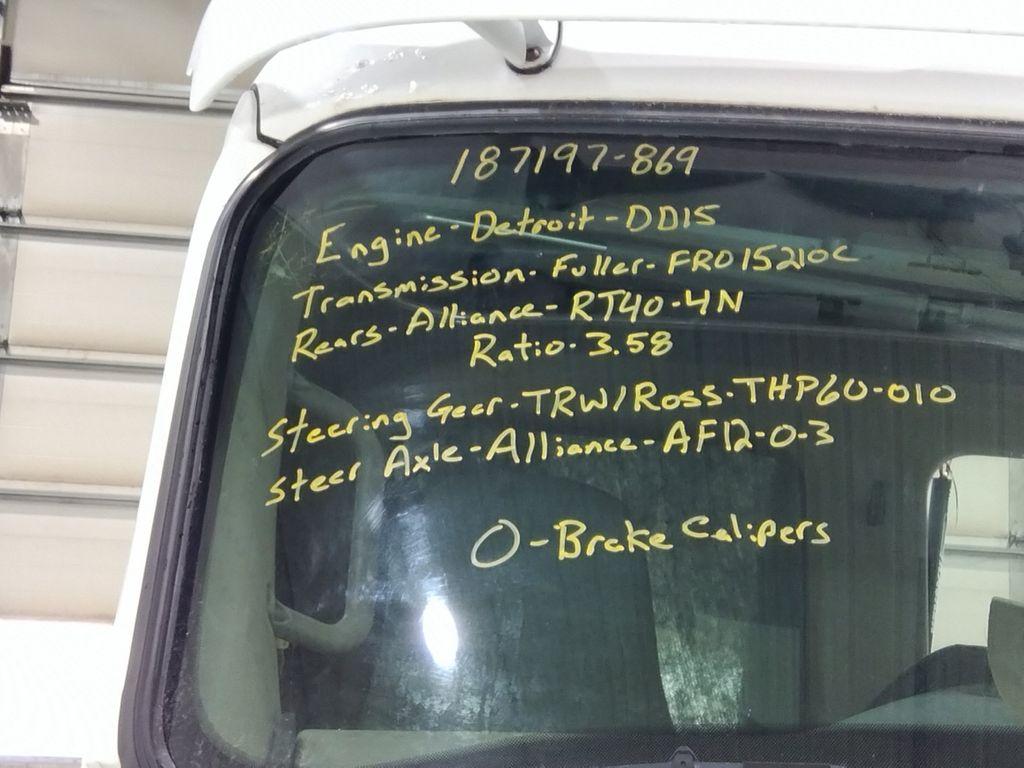 187197-869
Engine-Detroit-DD15
Transmission-Fuller-FRO15210C
Rears-Alliance-RT40-4N
Ratio-3.58
Steering Gear-TRW/Ross-THP60-010
Steer Axle-Alliance-AF12-0-3
0-Brake Calipers